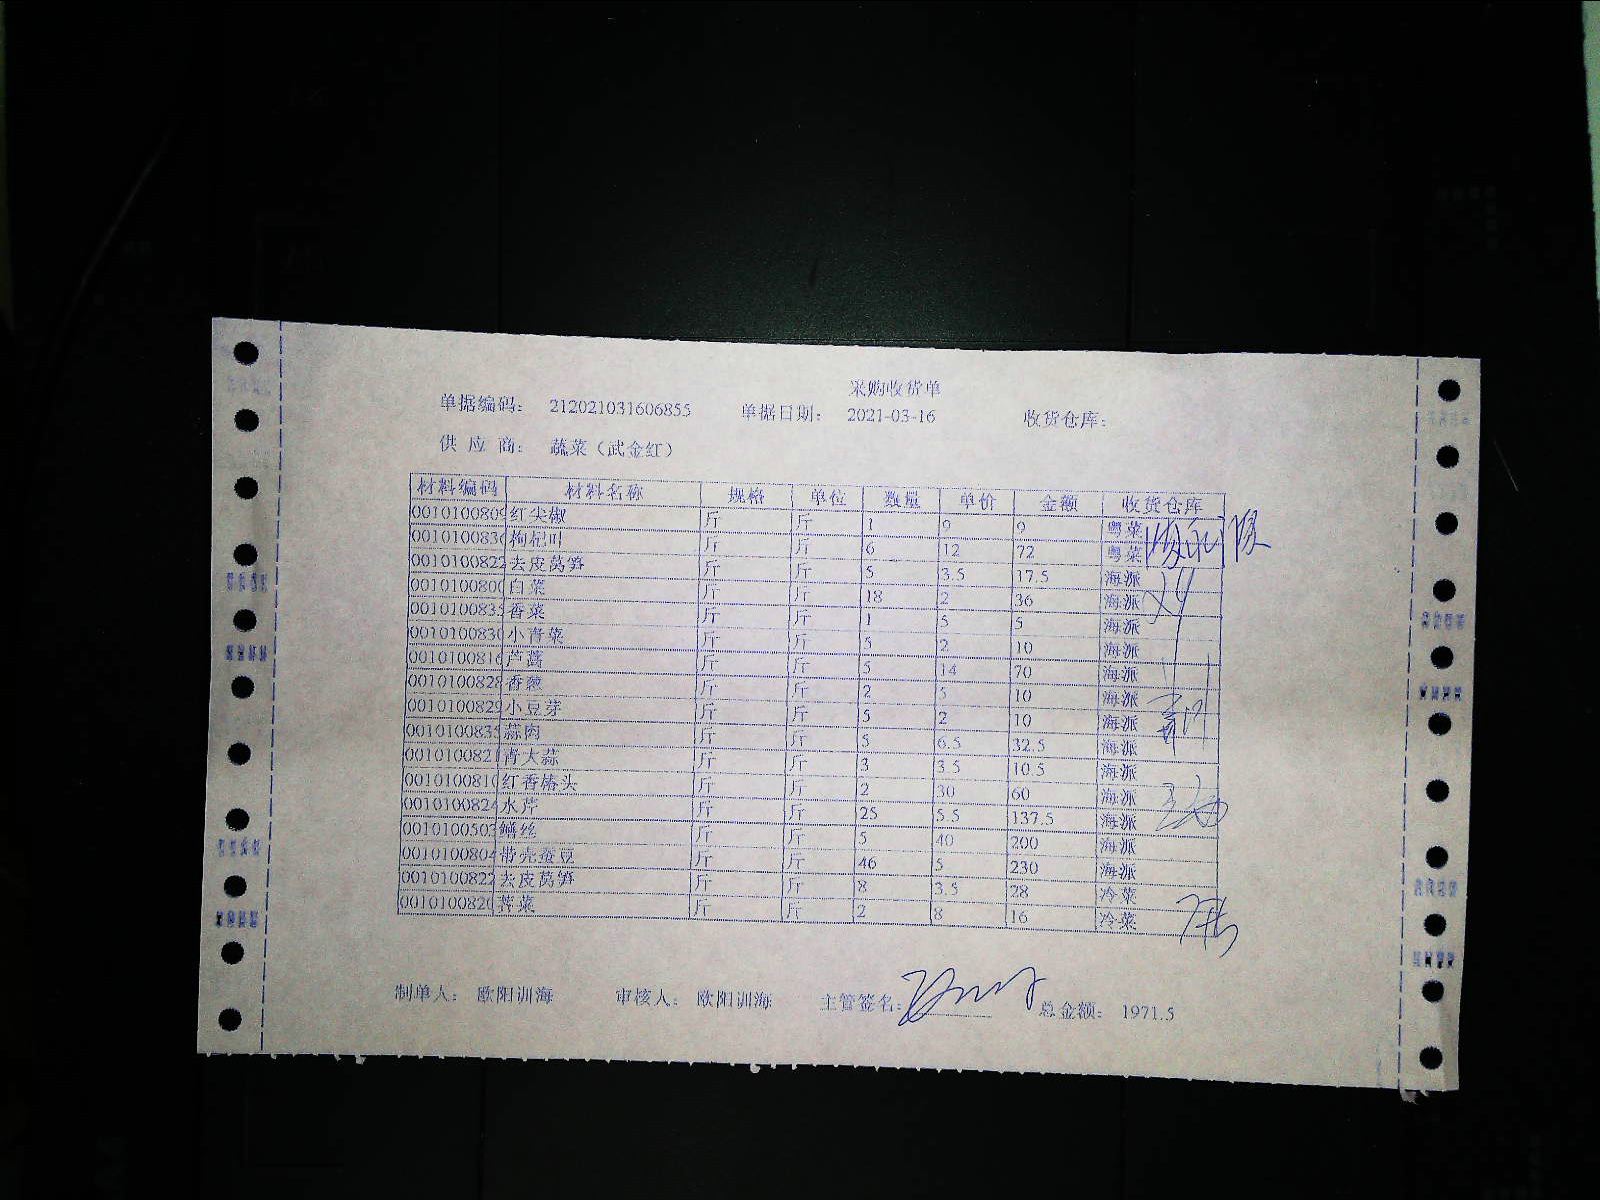 采购收货单
单据编码： 212021031606855 单据日期： 2021-03-16 收货仓库：
供 应 商： 蔬菜（武金红）
材料编码 材料名称 规格 单位 数量 单价 金额 收货仓库
0010100809 红尖椒 斤 斤 1 9 9 粤菜
001010083 枸杞叶 斤 斤 6 12 72 粤菜
0010100822 去皮莴笋 斤 斤 5 3.5 17.5 海派
001010080 白菜 斤 斤 18 2 36 海派
001010083 香菜 斤 斤 1 5 5 海派
001010083 小青菜 斤 斤 5 2 10 海派
001010081 芦蒿 斤 斤 5 14 70 海派
0010100828 香葱 斤 斤 2 5 10 海派
0010100829 小豆芽 斤 斤 5 2 10 海派
001010083 蒜肉 斤 斤 5 6.5 32.5 海派
001010082 青大蒜 斤 斤 3 3.5 10.5 海派
001010081 红香椿头 斤 斤 2 30 60 海派
0010100824 水芹 斤 斤 25 5.5 137.5 海派
001010050 鳝丝 斤 斤 5 40 200 海派
0010100804 带壳蚕豆 斤 斤 46 5 230 海派
0010100822 去皮莴笋 斤 斤 8 3.5 28 冷菜
001010082 荠菜 斤 斤 2 8 16 冷菜
制单人： 欧阳训海 审核人： 欧阳训海 主管签名： 总金额： 1971.5